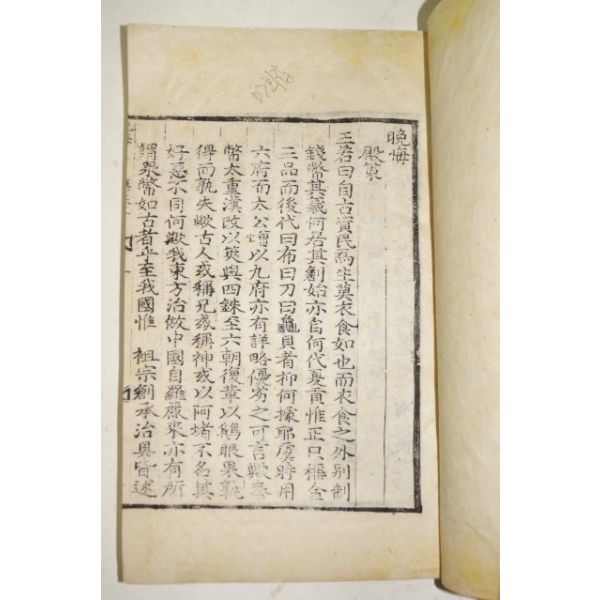 晩悔
殿策
王若曰自古資民爲生莫衣食如也而衣食之外別制
錢幣其義何居其創始亦自何代夏貢惟正只稱金
三品而後代曰布曰刀曰龜貝者抑何據耶虞時用
六府而太公增以九府亦有詳略優劣之可言歟秦
幣太重漢改以莢與四銖至六朝復以鵝眼果孰
得而孰失歟古人或稱兄或稱神或以阿堵不名其
好惡不同何歟我東方治倣中國自羅麗來亦有所
謂泉幣如古者乎至我國惟 祖宗創承治具皆述